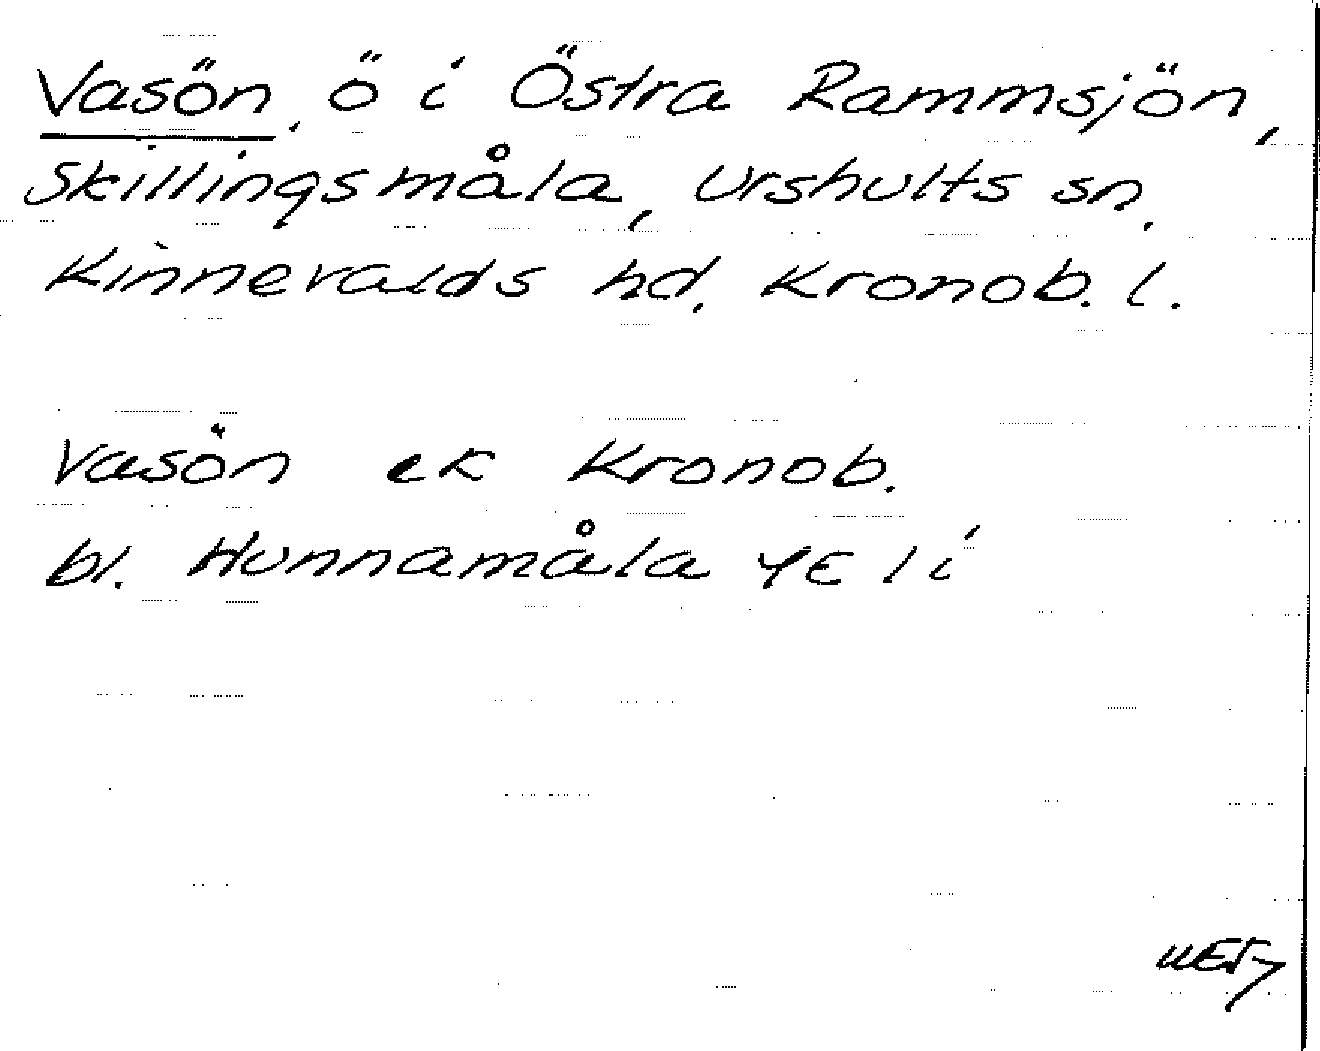 Vasön, ö i Östra Rammsjön,
Skillingsmåla, Urshults sn,
Kinnevalds hd. Kronob. l.
Vasön ek Kronob.
bl. Hunnamåla 4E 1i